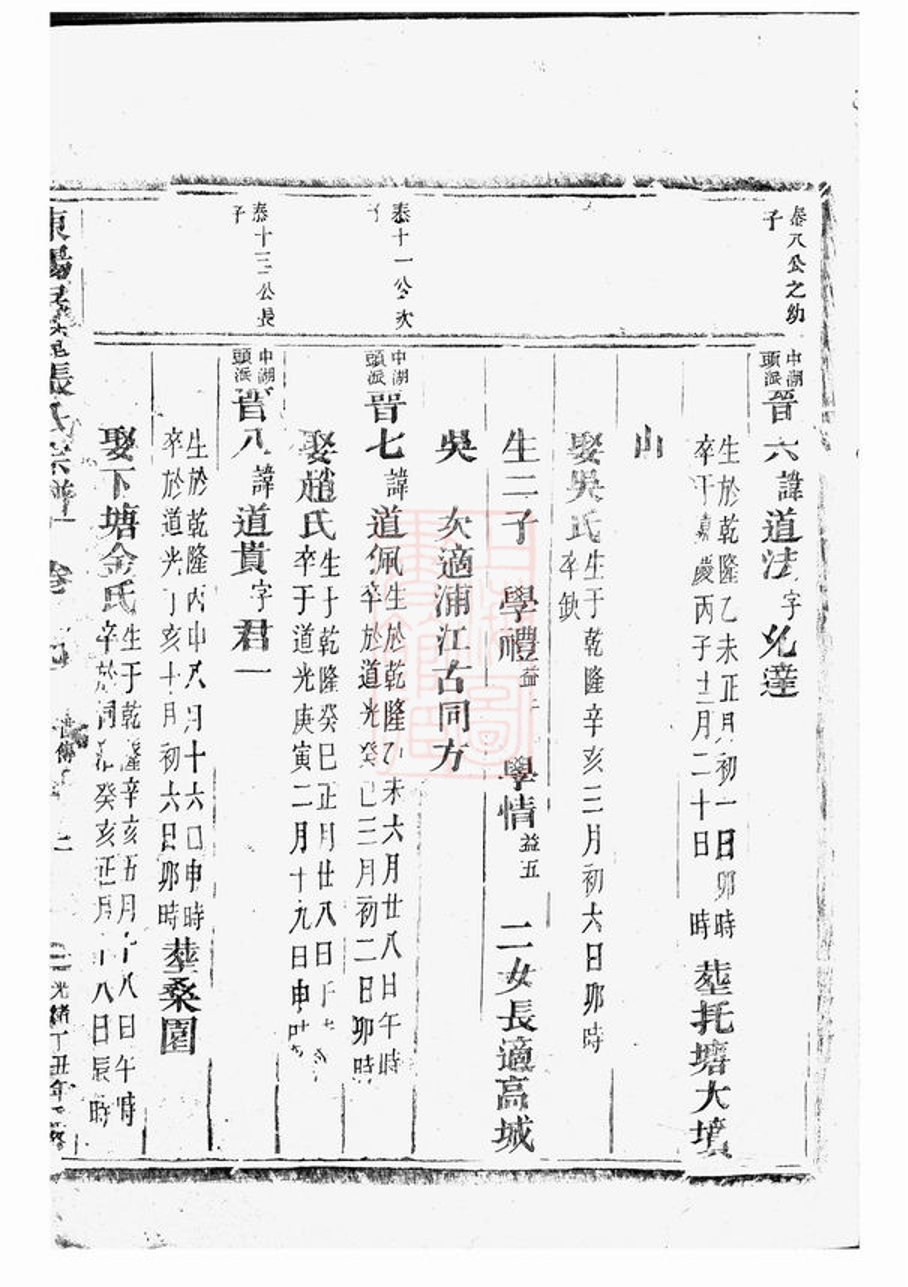 泰八公之幼
子
中湖
頭派
晉六諱道法字兆達
生於乾隆乙未正月初一日卯時
卒于嘉慶丙子十二月二十日時
塟托塘大墳
山
娶吳氏
生于乾隆辛亥三月初六日卯時
卒欽
生二子學禮益學情益五二女長適高城
吳次適浦江古同方
泰十一公次
中湖
頭派
晉七諱道佩
生於乾隆乙未六月廿八日午時
卒於道光癸巳三月初二日卯時
娶趙氏
生于乾隆癸巳正月廿八日
卒于道光庚寅二月十九日申
泰十三公長
子
中湖
頭派
晉八諱道貴字君一
生於乾隆丙申八月十六日申時
卒於道光丁亥十月初六日卯時
塟桑園
娶下塘金氏
生于乾隆辛亥五月十八日午時
卒於同治癸亥正月十八日辰時
東陽張氏宗譜
卷
光緒丁丑年